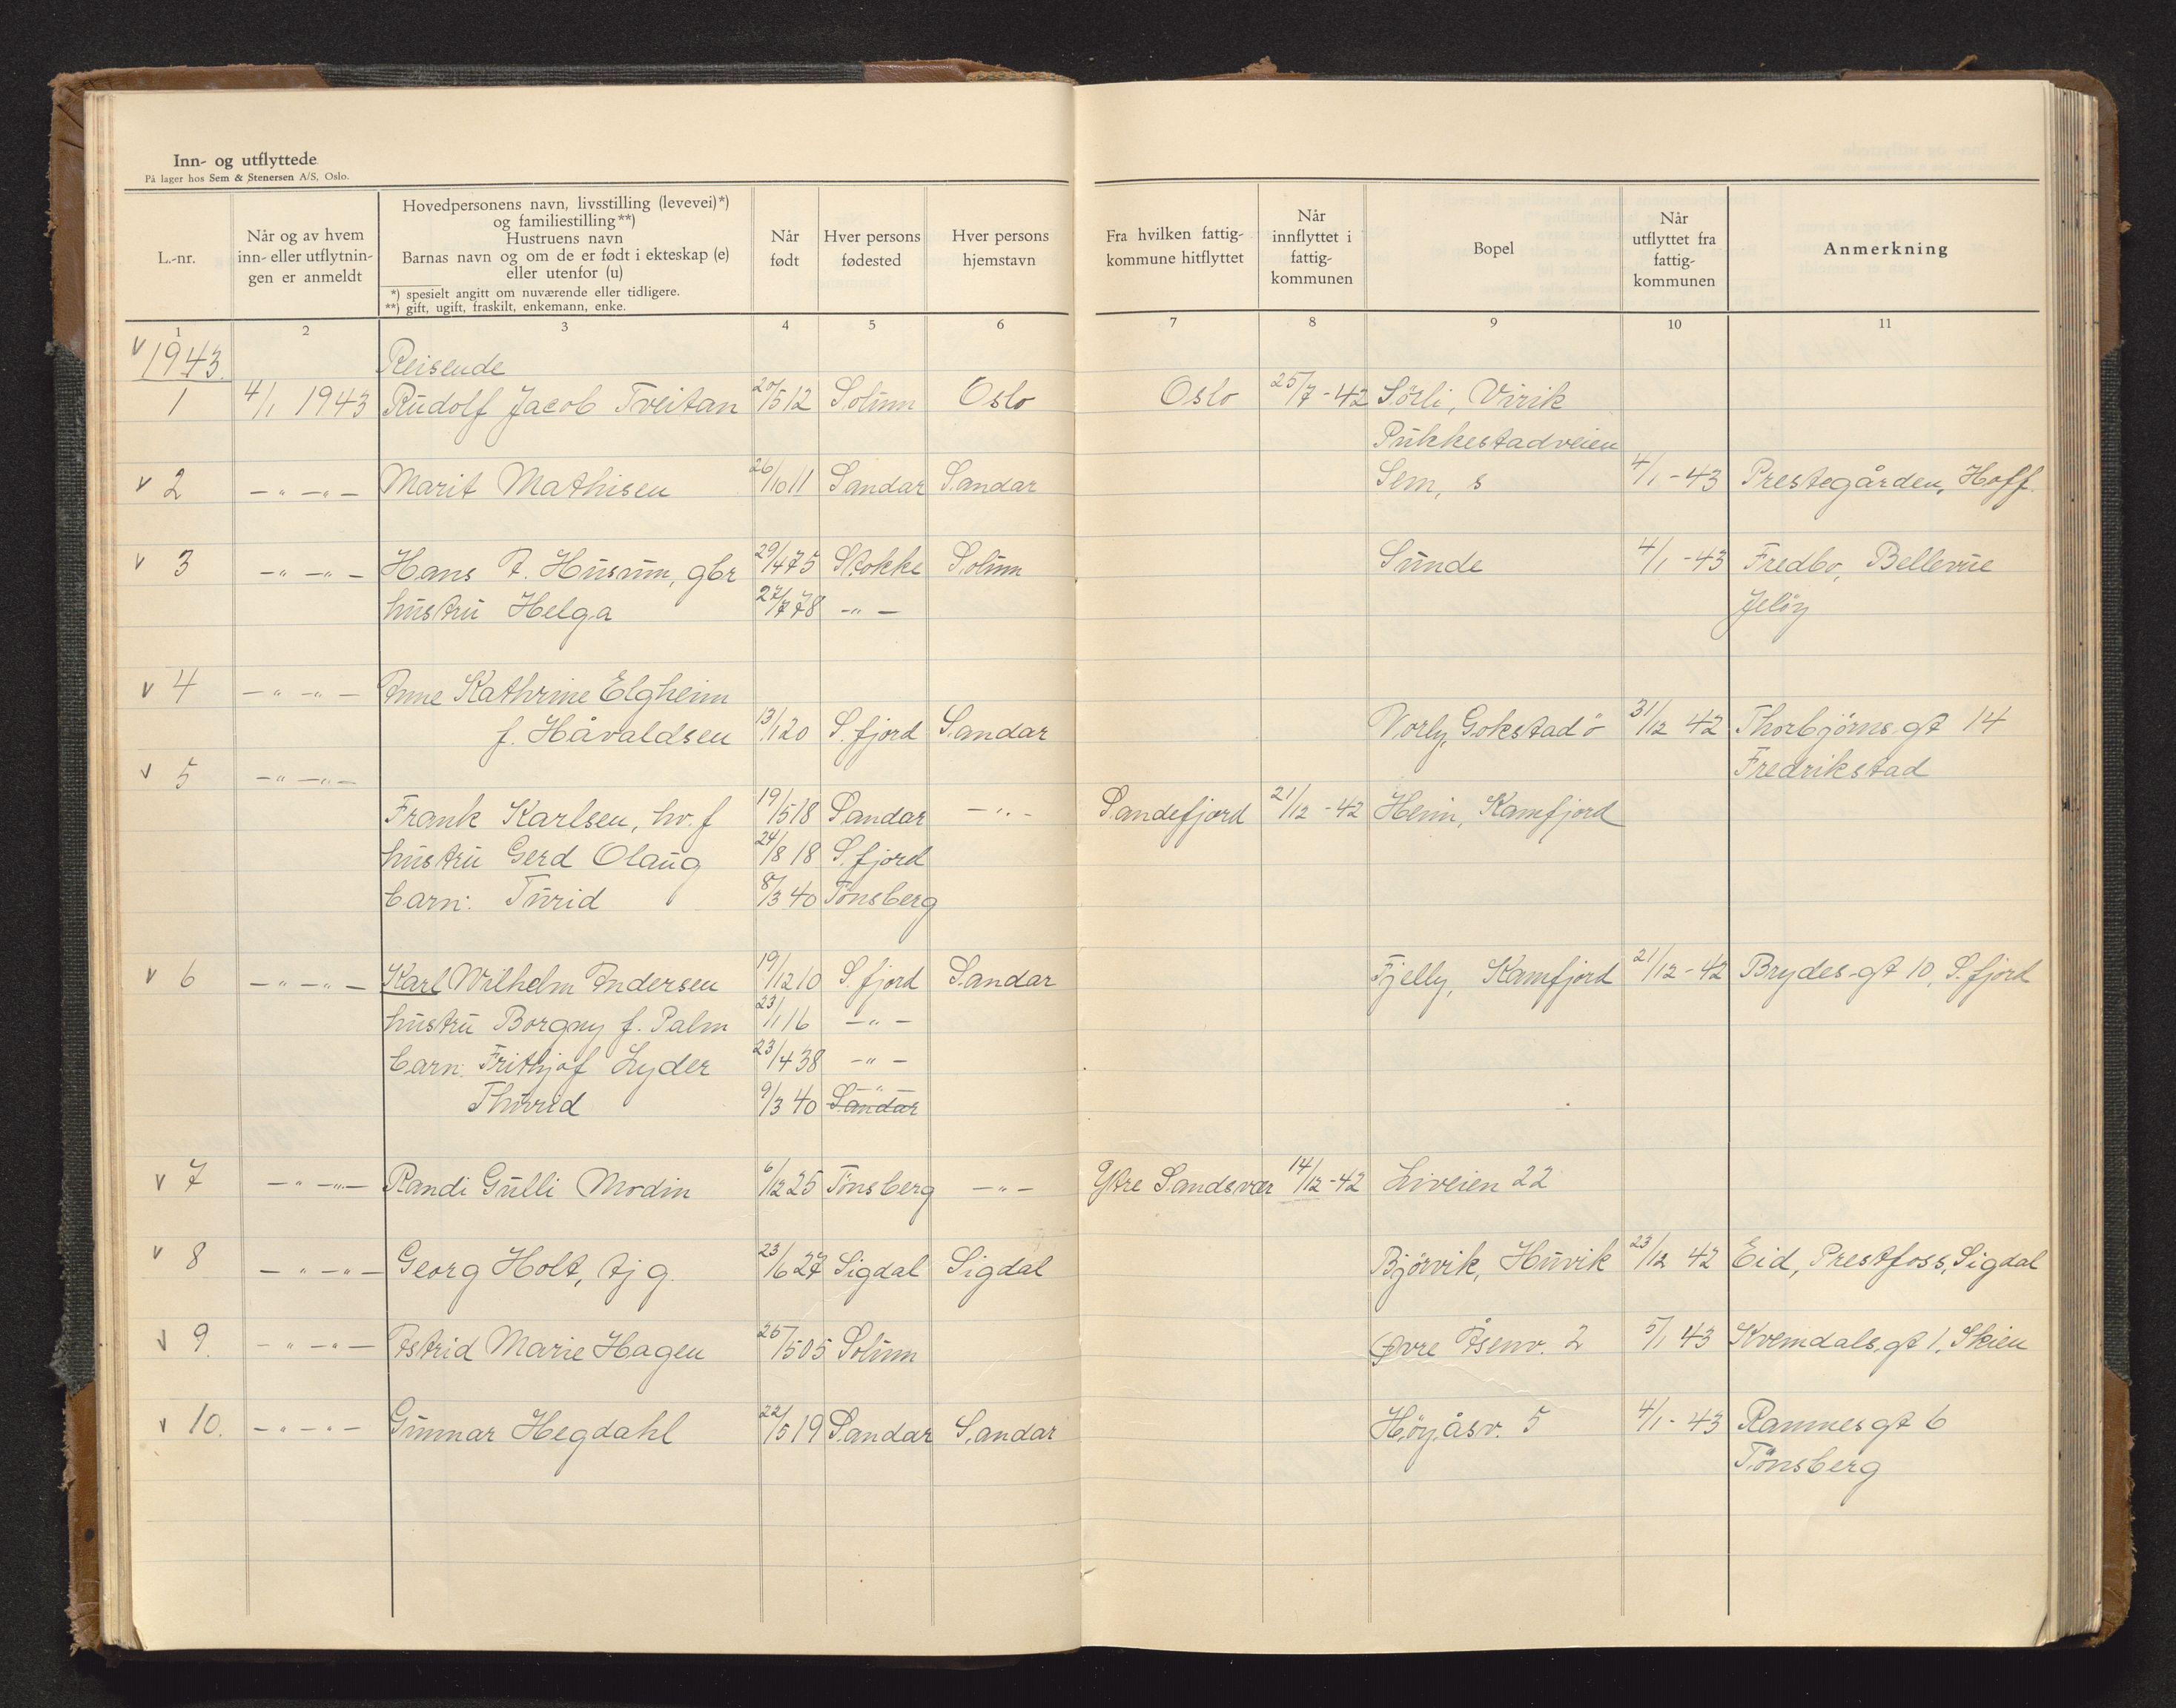 Inn- og utflyttede
På lager hos Sem & Stenersen A/S, Oslo.
L.-nr. | Når og av hvem inn- eller utflytnin-gen er anmeldt | Hovedpersonens navn, livsstilling (levevei)*) og familiestilling**) Hustruens navn Barnas navn og om de er født i ekteskap (e) eller utenfor (u) *) spesielt angitt om nuværende eller tidligere. **) gift, ugift, fraskilt, enkemann, enke. | Når født | Hver persons fødested | Hver persons hjemstavn | Fra hvilken fattig-kommune hitflyttet | Når innflyttet i fattig-kommunen | Bopel | Når utflyttet fra fattig-kommunen | Anmerkning
1 2 3 4 5 6 7 8 9 10 11
v 1943. Reisende
1 4/1 1943 Rudolf Jacob Tveitan 20/5 12 Solum Oslo Oslo 25/7-42 Sörli, Virik
Pukkestadveien
v 2 -"- -"- Marit Mathisen 26/10 11 Sandar Sandar Sem, s 4/1-43 Prestegården, Hoff.
v 3 -"- -"- Hans A. Husum, gbr 29/4 75 Stokke Solum Sunde 4/1-43 Fredbo, Bellevue
hustru Helga 27/7 78 -"- Jelöy
v 4 -"- -"- Anne Kathrine Elgheim
f. Håvaldsen 13/1 20 S.fjord Sandar Vorly, Gokstad ö 31/12 42 Thorbjörns gt 14
v 5 -"- -"- Fredrikstad
Frank Karlsen, hv.f 19/5 18 Sandar -"- Sandefjord 21/12-42 Heim, Kamfjord
hustru Gerd Olaug 24/8 18 S.fjord
barn: Turid 8/3 40 Tönsberg
v 6 -"- -"- Karl Wilhelm Andersen 19/12 10 S.fjord Sandar Fjelly, Kamfjord 21/12-42 Brydes gt 10, S.fjord
hustru Borgny f. Palm 23/1 16 -"-
barn: Frithjof Lyder 23/4 38 -"-
Thurid 9/3 40 Sandar -"-
v 7 -"- -"- Randi Gulli Modin 6/12 25 Tönsberg -"- Ytre Sandsvær 14/12-42 Liveien 22
v 8 -"- -"- Georg Holt, tjg. 23/6 27 Sigdal Sigdal Bjôrvik, Huvik 23/12 42 Eid, Prestfoss, Sigdal
v 9. -"- -"- Astrid Marie Hagen 25/5 05 Solum Øvre Åsenv. 2 5/1 43 Kvemdals gt 1, Skien
v 10. -"- -"- Gunnar Hegdahl 22/5 19 Sandar Sandar Höyåsv. 5 4/1-43 Ramnes gt 6
Tönsberg